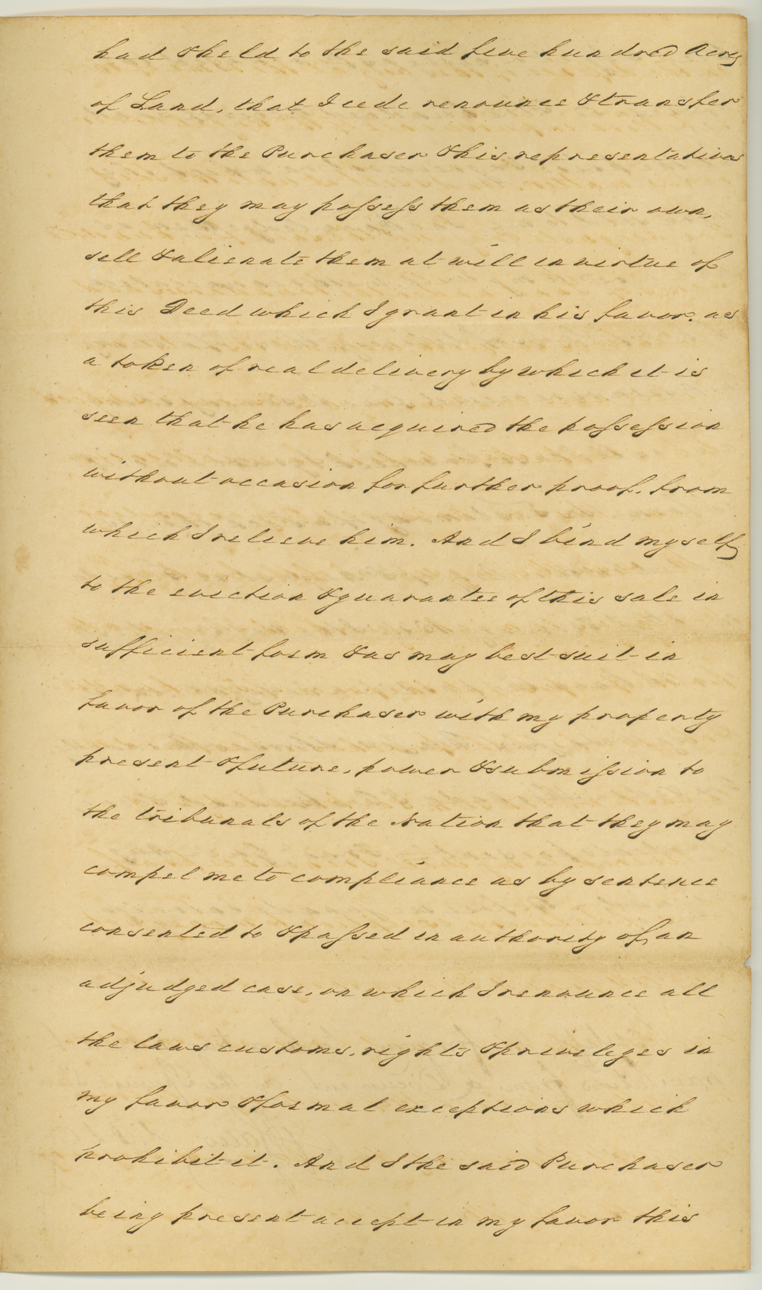 had & held to the said five hundred Acres
of Land, that I cede renounce & transfer
them to the Purchaser & his representatives
that they may possess them as their own,
sell & alienate them at will in virtue of
this Deed which I grant in his favor. as
a token of real delivery by which it is
seen that he has acquired the possession
without occasion for further proof. from
which I relieve him. And I bind myself
to the eviction & guarantee of this sale in
sufficient form & as may best suit in
favor of the Purchaser with my property
present & future, power & submission to
the tribunals of the Nation that they may
compel me to compliance as by sentence
consented to & passed in authority of an
adjudged case, on which I renounce all
the laws customs, rights & priveleges in
my favor & formal exceptions which
prohibit it. And I the said Purchaser
being present accept in my favor this